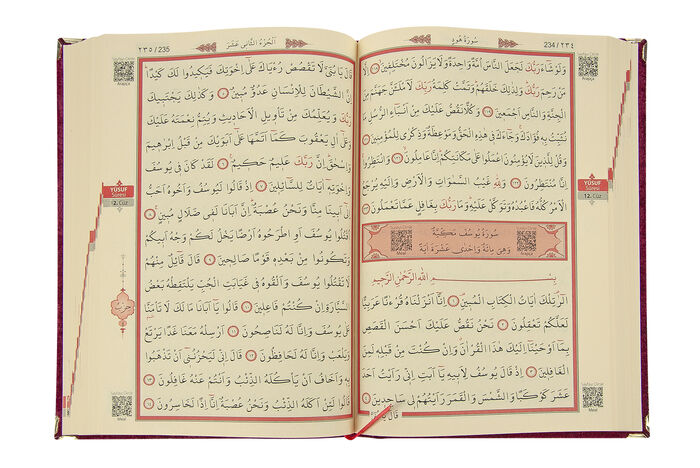 سُورَةُ هُودٍ
234 / ٢٣٤
وَلَوْ شَاءَ رَبُّكَ لَجَعَلَ النَّاسَ اُمَّةً وَاحِدَةً وَلَا يَزَالُونَ مُخْتَلِفِينَ ١١٨
اِلَّا مَنْ رَحِمَ رَبُّكَ وَلِذٰلِكَ خَلَقَهُمْ وَتَمَّتْ كَلِمَةُ رَبِّكَ لَاَمْلَـَٔنَّ جَهَنَّمَ مِنَ
الْجِنَّةِ وَالنَّاسِ اَجْمَعِينَ ١١٩ وَكُلًّا نَقُصُّ عَلَيْكَ مِنْ اَنْبَاءِ الرُّسُلِ مَا
نُثَبِّتُ بِهِ فُؤَادَكَ وَجَاءَكَ فِي هٰذِهِ الْحَقُّ وَمَوْعِظَةٌ وَذِكْرٰى لِلْمُؤْمِنِينَ ١٢٠
وَقُلْ لِلَّذِينَ لَا يُؤْمِنُونَ اعْمَلُوا عَلٰى مَكَانَتِكُمْ اِنَّا عَامِلُونَ ١٢١ وَانْتَظِرُوا
اِنَّا مُنْتَظِرُونَ ١٢٢ وَلِلّٰهِ غَيْبُ السَّمٰوَاتِ وَالْاَرْضِ وَاِلَيْهِ يُرْجَعُ
الْاَمْرُ كُلُّهُ فَاعْبُدْهُ وَتَوَكَّلْ عَلَيْهِ وَمَا رَبُّكَ بِغَافِلٍ عَمَّا تَعْمَلُونَ ١٢٣
سُورَةُ يُوسُفَ مَكِّيَّةٌ
وَهِيَ مِائَةٌ وَاِحْدٰى عَشْرَةَ اٰيَةً
Meal
Arapça
بِسْمِ اللّٰهِ الرَّحْمٰنِ الرَّحِيمِ
الٓرٰ تِلْكَ اٰيَاتُ الْكِتَابِ الْمُبِينِ ١ اِنَّا اَنْزَلْنَاهُ قُرْءٰنًا عَرَبِيًّا
لَعَلَّكُمْ تَعْقِلُونَ ٢ نَحْنُ نَقُصُّ عَلَيْكَ اَحْسَنَ الْقَصَصِ
بِمَا اَوْحَيْنَا اِلَيْكَ هٰذَا الْقُرْاٰنَ وَاِنْ كُنْتَ مِنْ قَبْلِهِ لَمِنَ
الْغَافِلِينَ ٣ اِذْ قَالَ يُوسُفُ لِاَبِيهِ يَا اَبَتِ اِنِّي رَاَيْتُ اَحَدَ
عَشَرَ كَوْكَبًا وَالشَّمْسَ وَالْقَمَرَ رَاَيْتُهُمْ لِي سَاجِدِينَ ٤
Arapça
YUSUF
Sûresi
12. Cüz
Meal
اَلْجُزْءُ الثَّانِي عَشَرَ
٢٣٥ / 235
قَالَ يَا بُنَيَّ لَا تَقْصُصْ رُءْيَاكَ عَلٰى اِخْوَتِكَ فَيَكِيدُوا لَكَ كَيْدًا
اِنَّ الشَّيْطَانَ لِلْاِنْسَانِ عَدُوٌّ مُبِينٌ ٥ وَكَذٰلِكَ يَجْتَبِيكَ
رَبُّكَ وَيُعَلِّمُكَ مِنْ تَأْوِيلِ الْاَحَادِيثِ وَيُتِمُّ نِعْمَتَهُ عَلَيْكَ
وَعَلٰى اٰلِ يَعْقُوبَ كَمَا اَتَمَّهَا عَلٰى اَبَوَيْكَ مِنْ قَبْلُ اِبْرٰهِيمَ
وَاِسْحٰقَ اِنَّ رَبَّكَ عَلِيمٌ حَكِيمٌ ٦ لَقَدْ كَانَ فِي يُوسُفَ
وَاِخْوَتِهِ اٰيَاتٌ لِلسَّائِلِينَ ٧ اِذْ قَالُوا لَيُوسُفُ وَاَخُوهُ اَحَبُّ
اِلٰى اَبِينَا مِنَّا وَنَحْنُ عُصْبَةٌ اِنَّ اَبَانَا لَفِي ضَلَالٍ مُبِينٍ ٨
اُقْتُلُوا يُوسُفَ اَوِ اطْرَحُوهُ اَرْضًا يَخْلُ لَكُمْ وَجْهُ اَبِيكُمْ
وَتَكُونُوا مِنْ بَعْدِهِ قَوْمًا صَالِحِينَ ٩ قَالَ قَائِلٌ مِنْهُمْ
لَا تَقْتُلُوا يُوسُفَ وَاَلْقُوهُ فِي غَيَابَتِ الْجُبِّ يَلْتَقِطْهُ بَعْضُ
السَّيَّارَةِ اِنْ كُنْتُمْ فَاعِلِينَ ١٠ قَالُوا يَا اَبَانَا مَا لَكَ لَا تَأْمَنَّا
عَلٰى يُوسُفَ وَاِنَّا لَهُ لَنَاصِحُونَ ١١ اَرْسِلْهُ مَعَنَا غَدًا يَرْتَعْ
وَيَلْعَبْ وَاِنَّا لَهُ لَحَافِظُونَ ١٢ قَالَ اِنِّي لَيَحْزُنُنِي اَنْ تَذْهَبُوا
بِهِ وَاَخَافُ اَنْ يَأْكُلَهُ الذِّئْبُ وَاَنْتُمْ عَنْهُ غَافِلُونَ ١٣
قَالُوا لَئِنْ اَكَلَهُ الذِّئْبُ وَنَحْنُ عُصْبَةٌ اِنَّا اِذًا لَخَاسِرُونَ ١٤
Arapça
YUSUF
Sûresi
12. Cüz
حزب
Meal